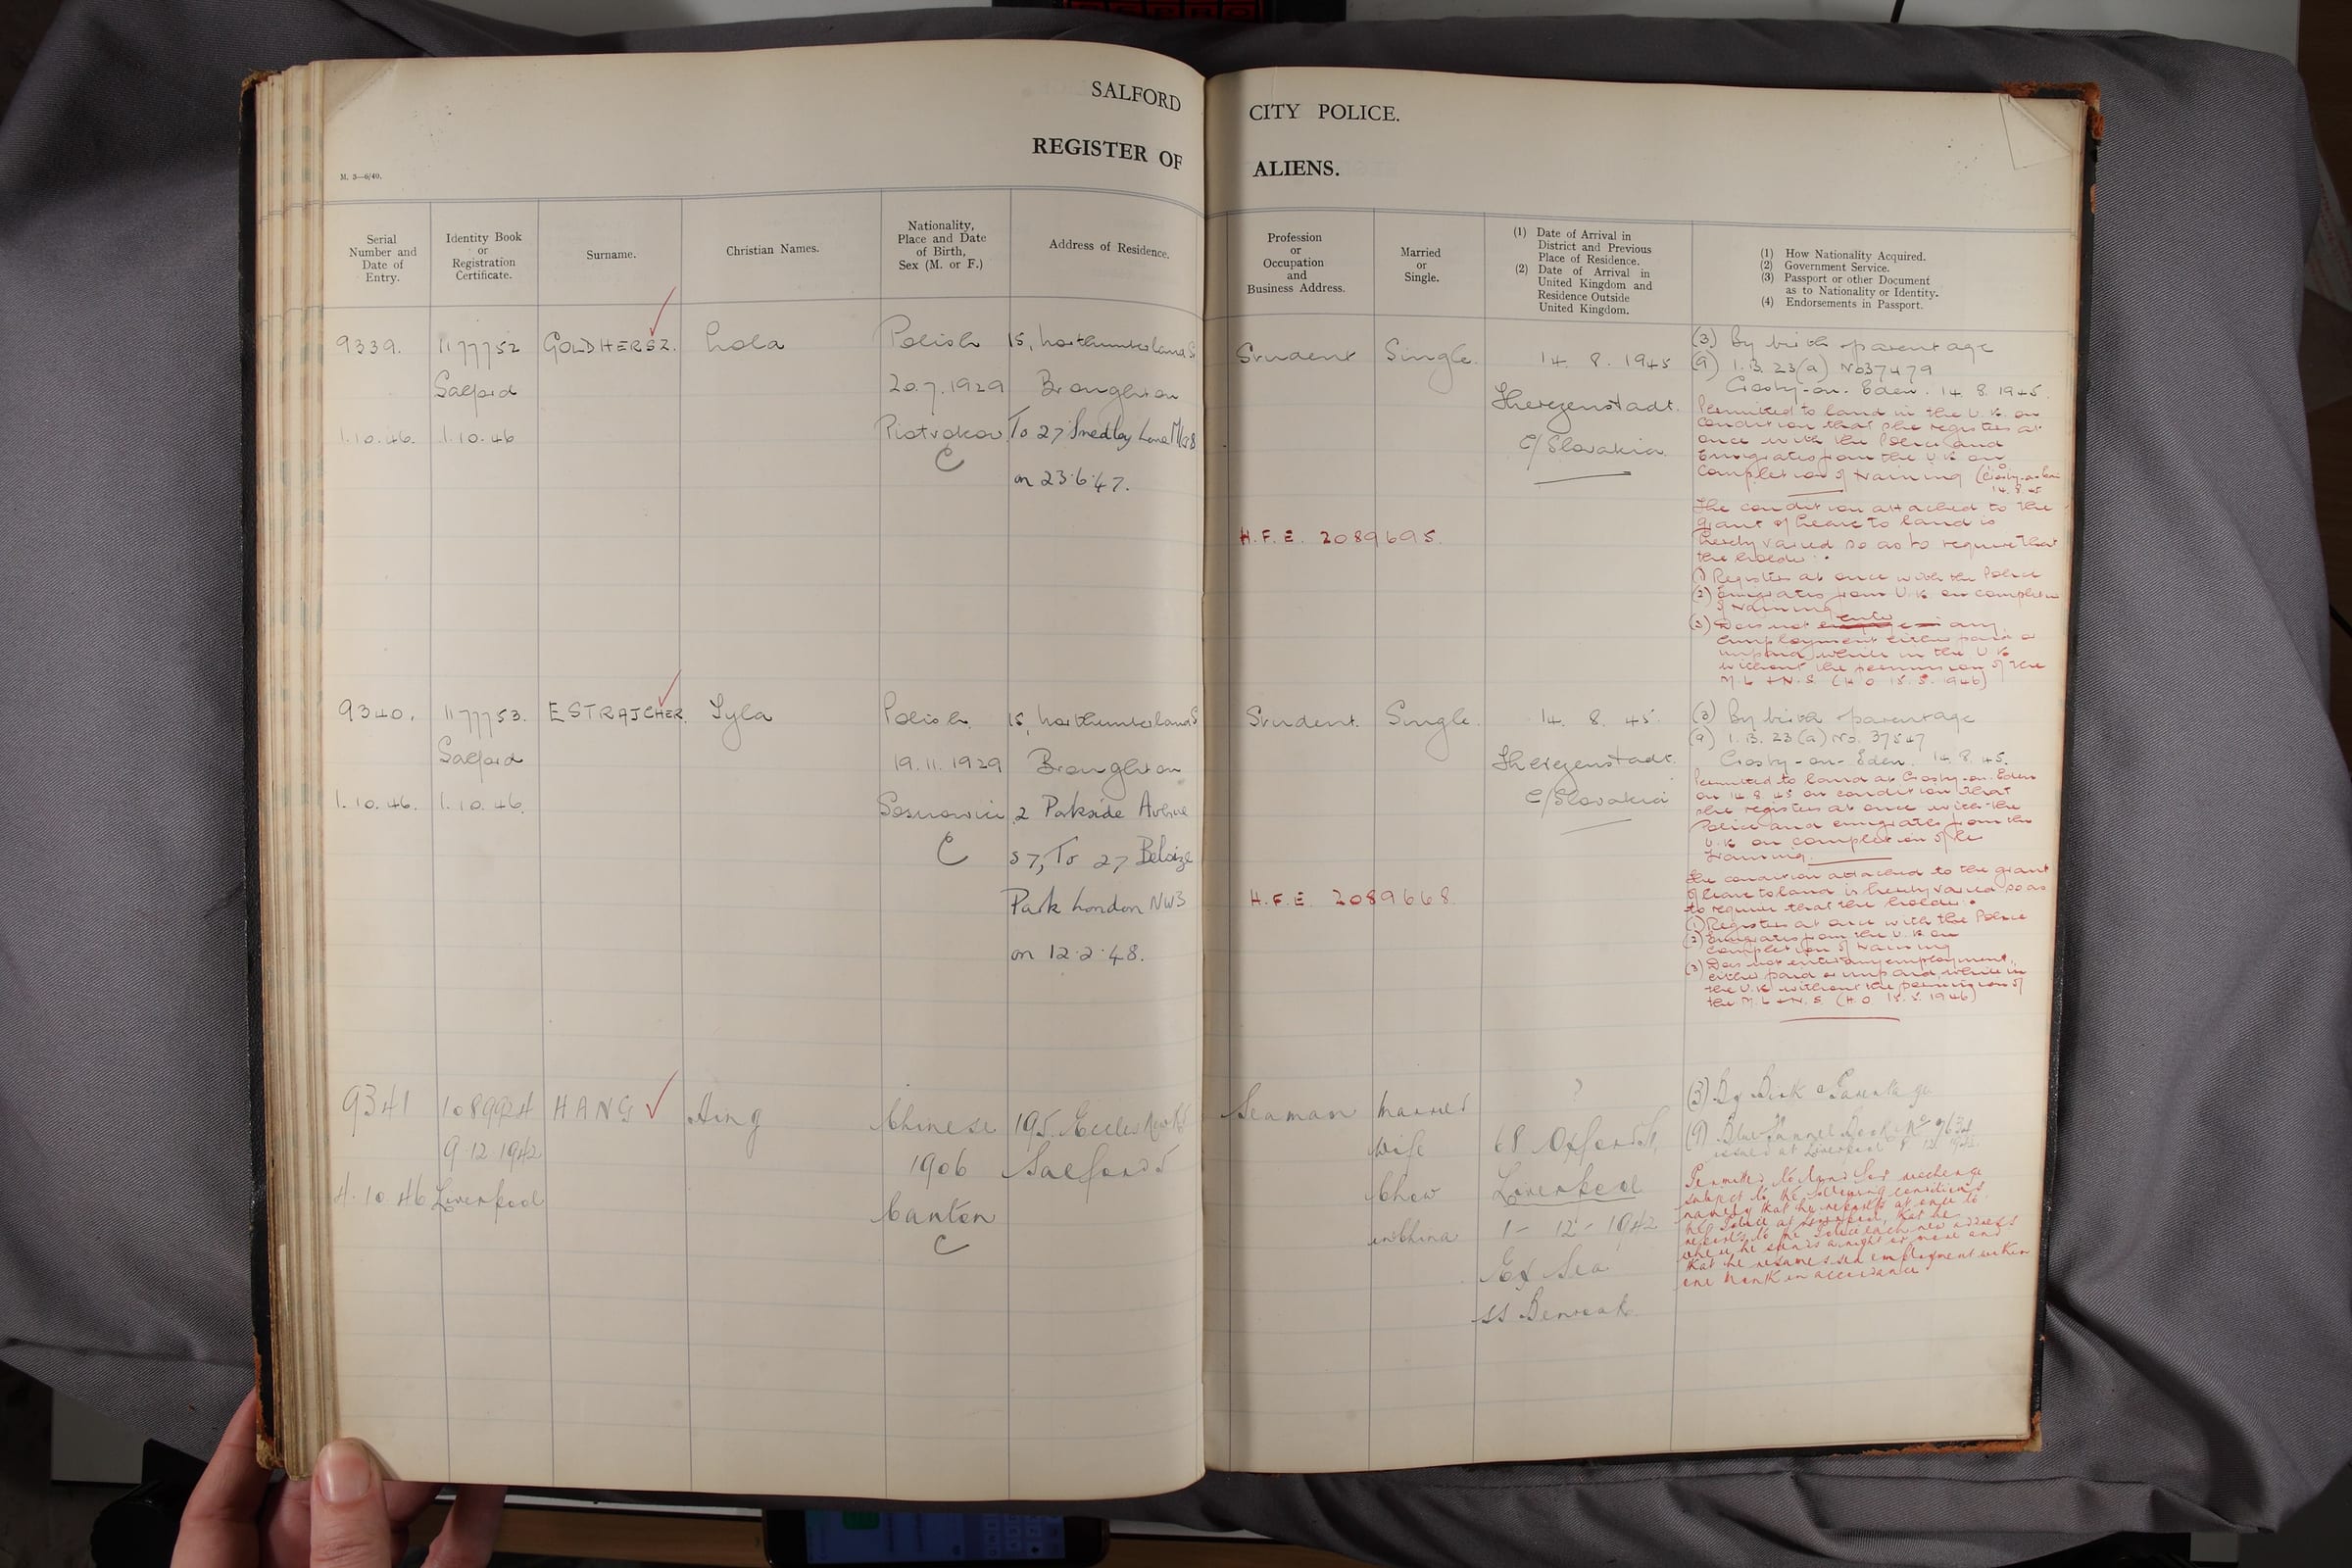 SALFORD CITY POLICE.
REGISTER OF ALIENS.
M. 3—6/40.
Serial Number and Date of Entry.
Identity Book or Registration Certificate.
Surname.
Christian Names.
Nationality, Place and Date of Birth, Sex (M. or F.)
Address of Residence.
Profession or Occupation and Business Address.
Married or Single.
(1) Date of Arrival in District and Previous Place of Residence.
(2) Date of Arrival in United Kingdom and Residence Outside United Kingdom.
(1) How Nationality Acquired.
(2) Government Service.
(3) Passport or other Document as to Nationality or Identity.
(4) Endorsements in Passport.
9339.
1.10.46.
1177752
Salford
1.10.46
GOLDHERSZ.
Lola
Polish
20.7.1929
Piotrokov
C
15, Northumberland S
Broughton
To 27 Smedley Lane M/cr 8
on 23.6.47.
Student
H.F.E. 2089695.
Single.
14. 8. 1945
Theregenstadt.
C/Slovakia.
(3) By birth & parentage
(9) I.B. 23(a) No 37479
Crosby-on-Eden. 14.8.1945.
Permitted to land in the U.K. on
condition that she registers at
once with the Police and
Emigrates from the U.K. on
completion of training (Crosby-on-Eden
14.8.45
The condition attached to the
grant of leave to land is
hereby varied so as to require that
the holder:
(1) Registers at once with the Police
(2) Emigrates from U.K. on completion
of training
(3) Does not enter any
employment either paid or
unpaid while in the U.K.
without the permission of the
M.L & N.S. (H.O. 15.5.1946)
9340.
1.10.46.
1177753.
Salford
1.10.46.
ESTRAJCHER.
Syla
Polish.
19.11.1929
Sosnowice
C
15, Northumberland S
Broughton
2 Parkside Avenue
S7, To 27 Belsize
Park London NW3
on 12.2.48.
Student.
H.F.E. 2089668.
Single.
14. 8. 45.
Theregenstadt.
C/Slovakia
(3) By birth & parentage
(9) I.B. 23(a) No. 37547
Crosby-on-Eden. 14.8.45.
Permitted to land at Crosby-on-Eden
on 14.8.45 on condition that
she registers at once with the
Police and emigrates from the
U.K. on completion of
training.
The condition attached to the grant
of leave to land is hereby varied so as
to require that the holder:
(1) Registers at once with the Police
(2) Emigrates from the U.K. on
completion of training
(3) Does not enter any employment,
either paid or unpaid, while in
the U.K. without the permission of
the M.L & N.S. (H.O. 15.5.1946)
9341
4.10.46
1089924
9.12.1942
Liverpool
HANG
Hing
Chinese
1906
Canton
C
195. Eccles New Rd
Salford 5
Seaman
Married
Wife
Chow
in China
?
68 Oxford St,
Liverpool
1-12-1942
Ex Sea
SS
(3) By Birth & Parentage
(9) Blue Funnel Book
issued at Liverpool
Permitted to land for
subject to the following conditions
namely that he reports at once to
the Police at Liverpool, that he
reports to the Police each new address
where he spends a night or more and
that he resumes sea employment within
one month in accordance